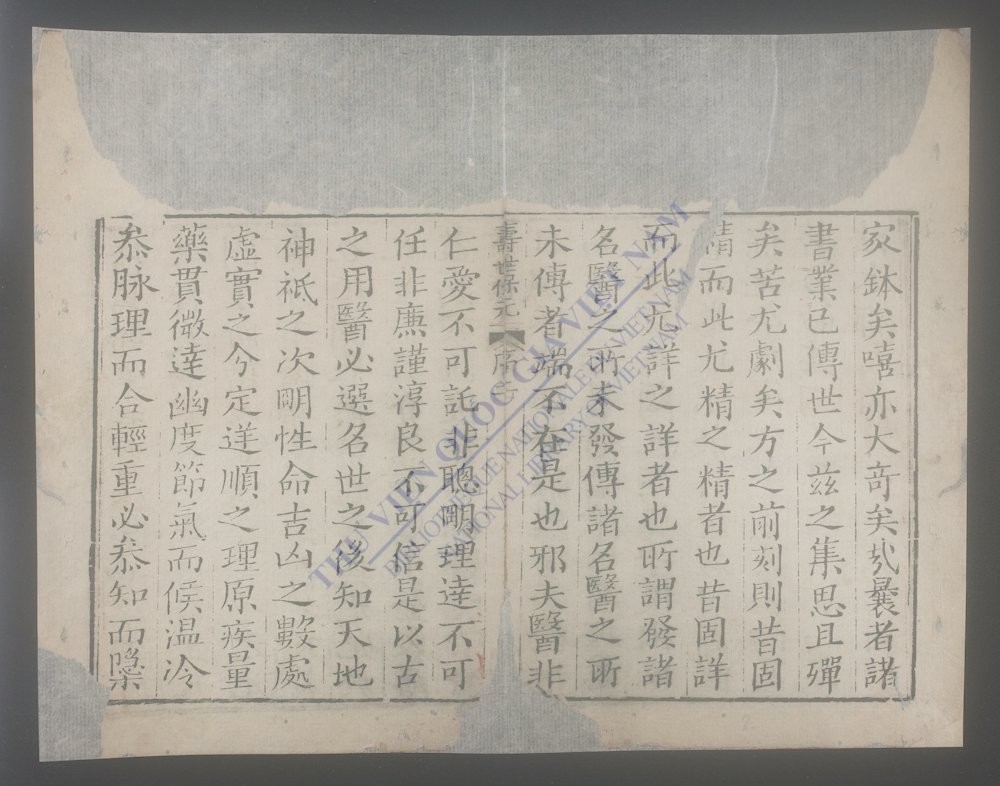 家鉢矣嘻亦大奇矣㢤曩者諸
書業已傳世今玆之集思且殫
矣苦尤劇矣方之前刻則昔固
精而此尤精之精者也昔固詳
而此尤詳之詳者也所謂發諸
名醫之所未發傳諸名醫之所
未傳者端不在是也邪夫醫非
壽世保元
序
仁愛不可託非聰明理達不可
任非廉謹淳良不可信是以古
之用醫必選名世之後知天地
神祇之次明性命吉凶之數處
虛實之分定逆順之理原疾量
藥貫微達幽度節氣而候温冷
叅脉理而合輕重必叅知而隱
THƯ VIỆN QUỐC GIA VIỆT NAM
BIBLIOTHEQUE NATIONALE DU VIETNAM
NATIONAL LIBRARY OF VIETNAM